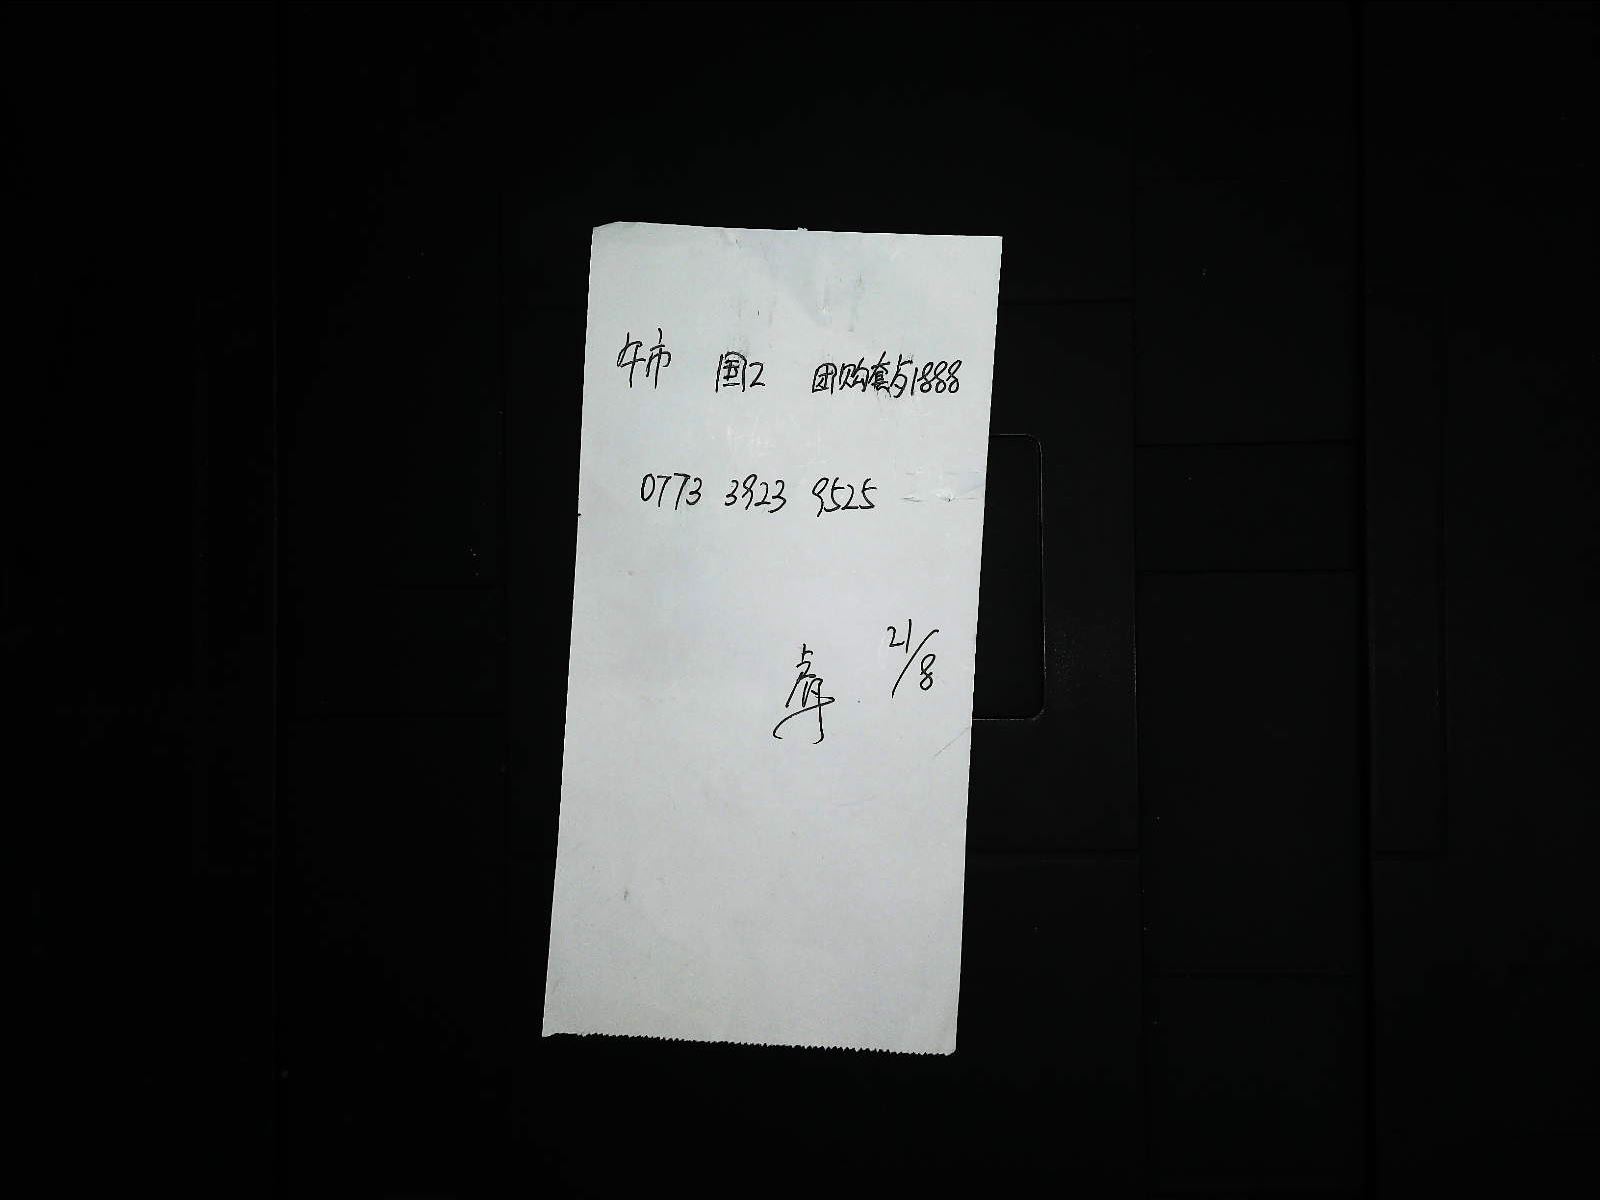 午市 国2 团购套与1888
0773 3923 9525
21/8